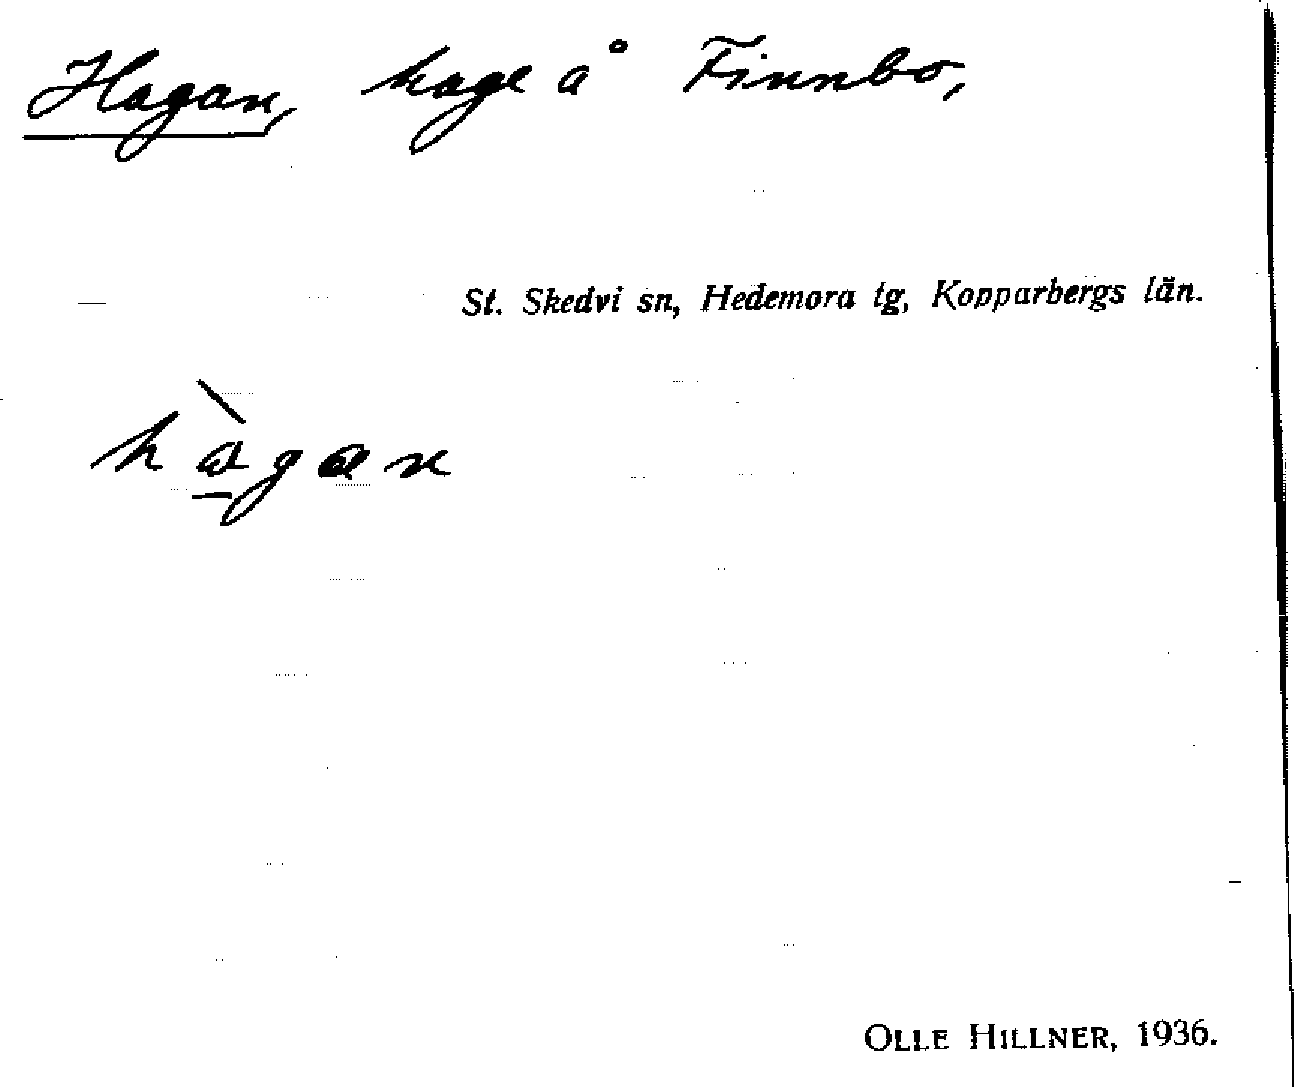 Hagan, hage å Finnbo,
St. Skedvi sn, Hedemora tg, Kopparbergs län.
hàgan
OLLE HILLNER, 1936.